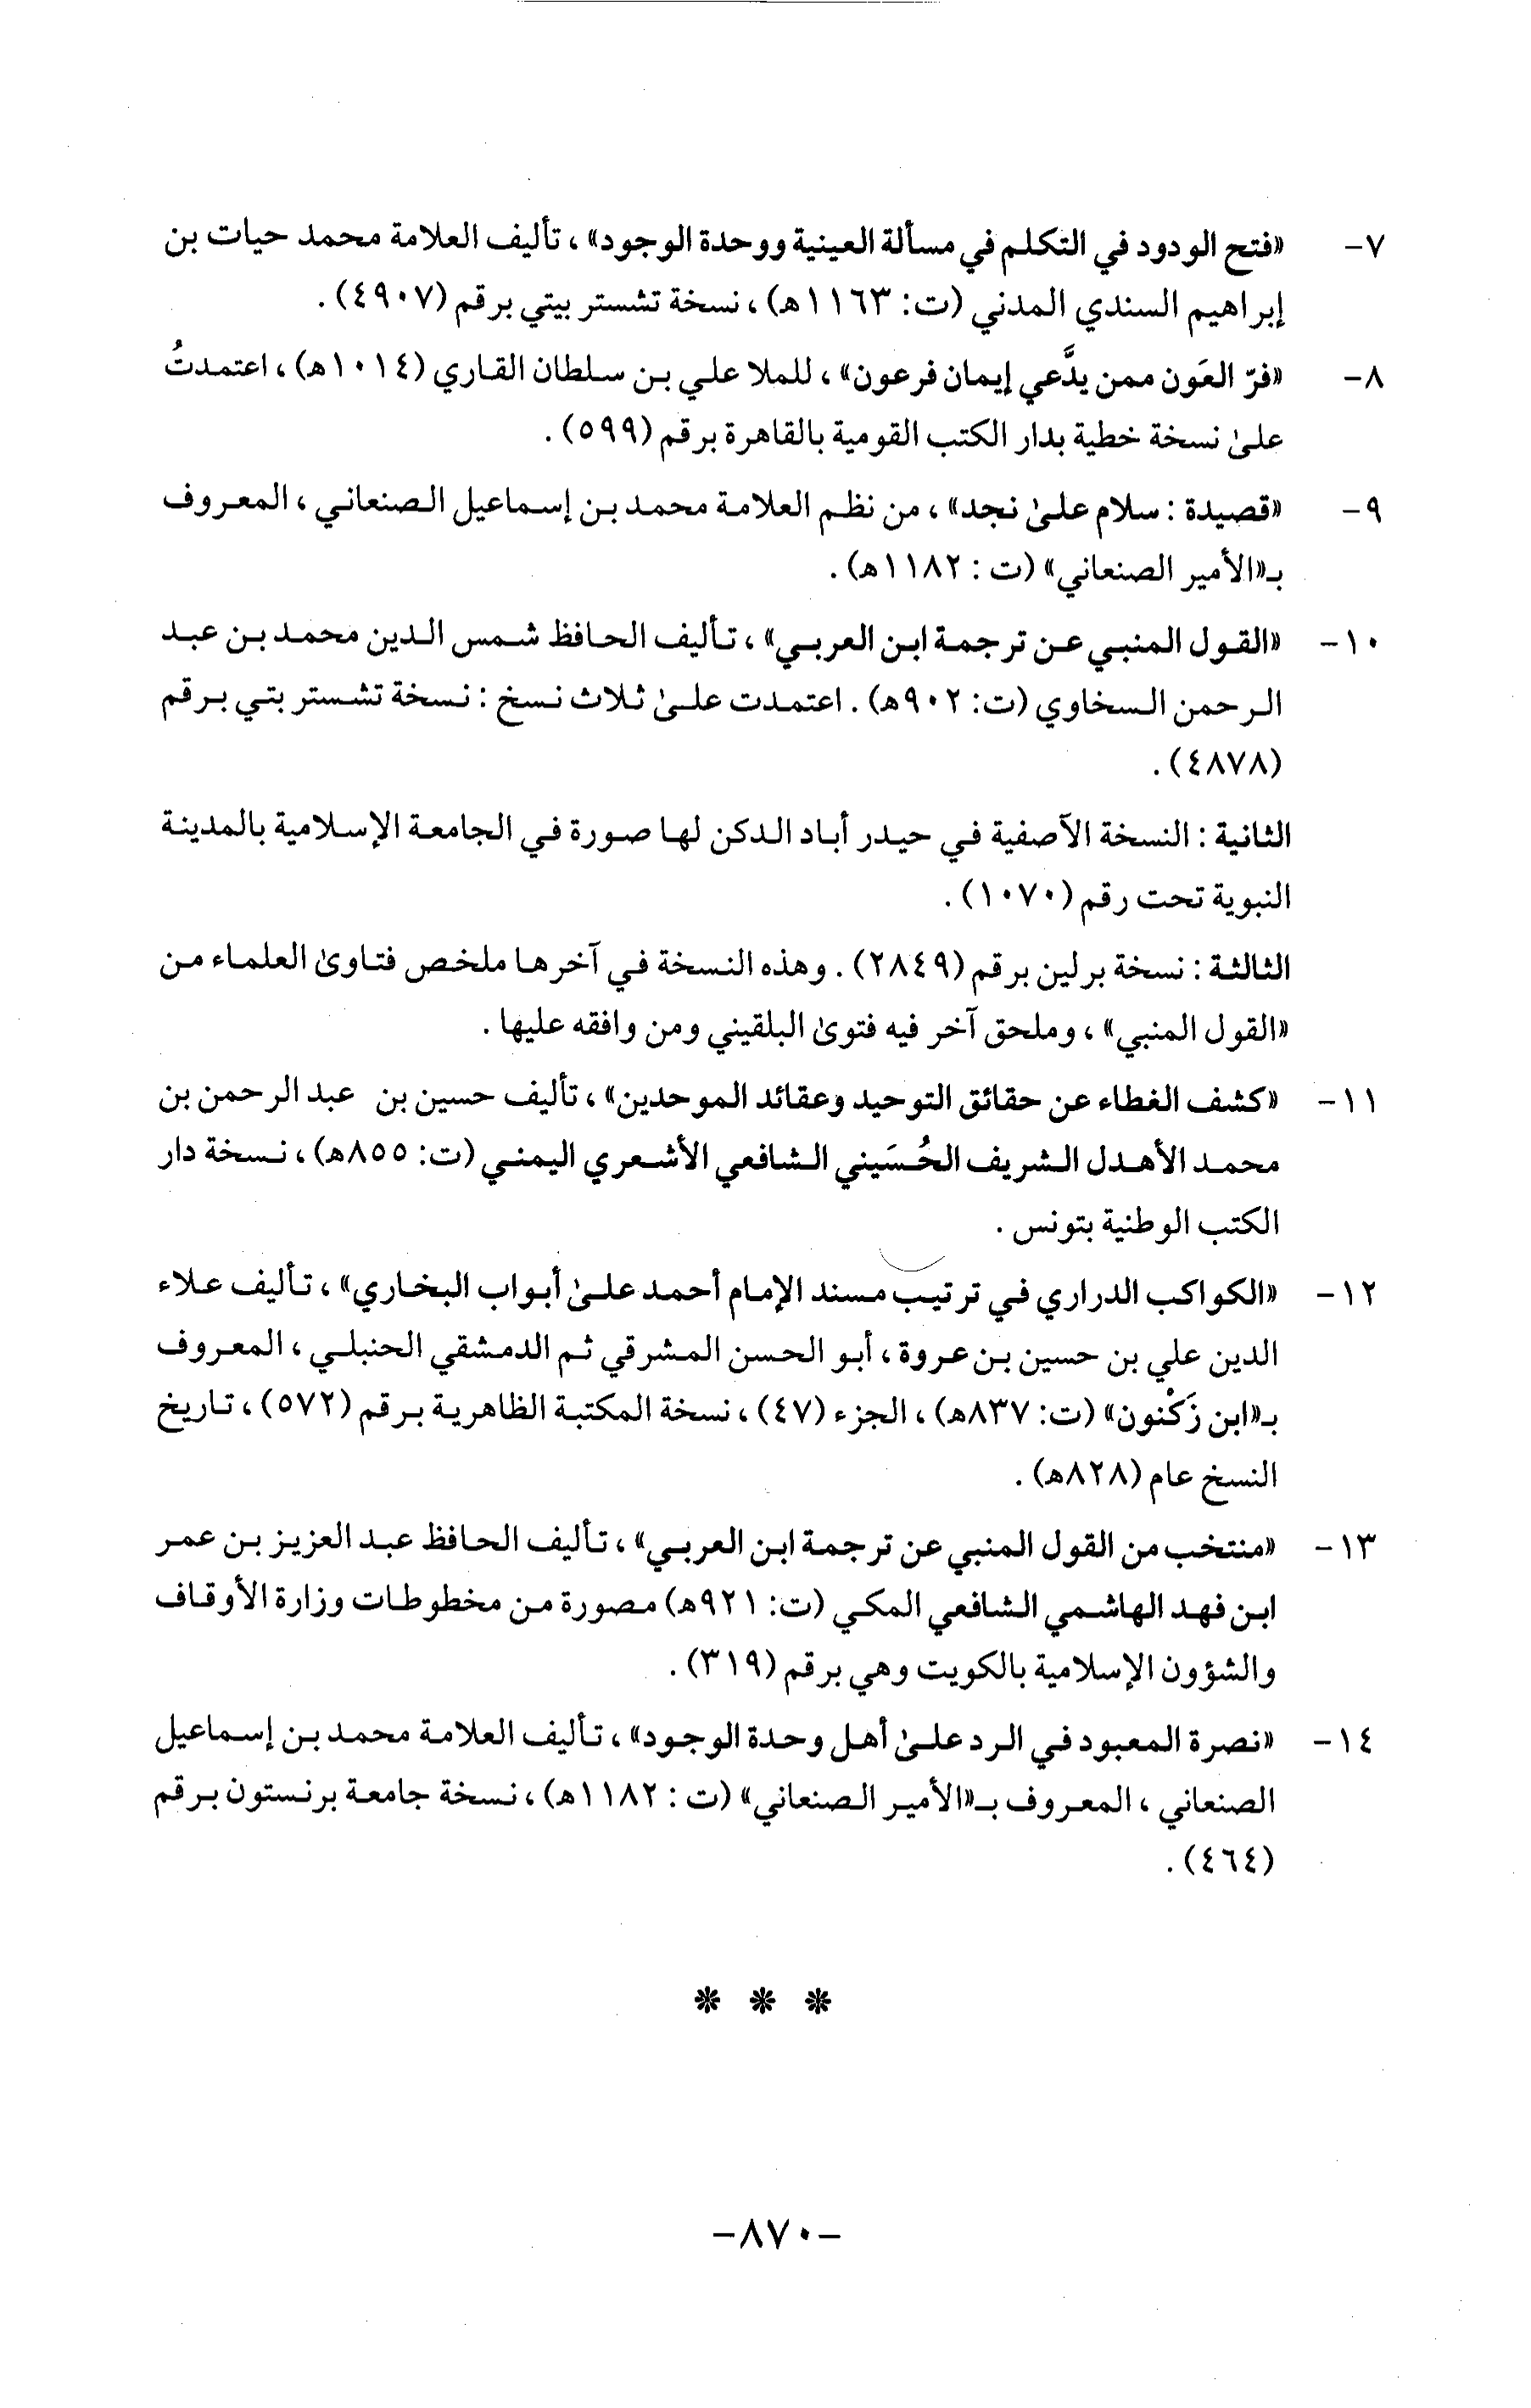 ٧- «فتح الودود في التكلم في مسألة العينية ووحدة الوجود» ، تأليف العلامة محمد حيات بن
إبراهيم السندي المدني (ت: ١١٦٣هـ) ، نسخة تشستر بيتي برقم (٤٩٠٧) .
٨- «فرّ العَون ممن يدَّعي إيمان فرعون» ، للملا علي بن سلطان القاري (١٠١٤هـ) ، اعتمدتُ
علىٰ نسخة خطية بدار الكتب القومية بالقاهرة برقم (٥٩٩) .
٩- «قصيدة : سلام علىٰ نجد» ، من نظم العلامة محمد بن إسماعيل الصنعاني ، المعروف
بـ«الأمير الصنعاني» (ت : ١١٨٢هـ) .
١٠- «القول المنبي عن ترجمة ابن العربي» ، تأليف الحافظ شمس الدين محمد بن عبد
الرحمن السخاوي (ت: ٩٠٢هـ) . اعتمدت علىٰ ثلاث نسخ : نسخة تشستر بتي برقم
(٤٨٧٨) .
الثانية : النسخة الآصفية في حيدر أباد الدكن لها صورة في الجامعة الإسلامية بالمدينة
النبوية تحت رقم (١٠٧٠) .
الثالثة : نسخة برلين برقم (٢٨٤٩) . وهذه النسخة في آخرها ملخص فتاوىٰ العلماء من
«القول المنبي» ، وملحق آخر فيه فتوىٰ البلقيني ومن وافقه عليها .
١١- «كشف الغطاء عن حقائق التوحيد وعقائد الموحدين» ، تأليف حسين بن عبد الرحمن بن
محمد الأهدل الشريف الحُسَيني الشافعي الأشعري اليمني (ت: ٨٥٥هـ) ، نسخة دار
الكتب الوطنية بتونس .
١٢- «الكواكب الدراري في ترتيب مسند الإمام أحمد علىٰ أبواب البخاري» ، تأليف علاء
الدين علي بن حسين بن عروة ، أبو الحسن المشرقي ثم الدمشقي الحنبلي ، المعروف
بـ«ابن زَكْنون» (ت: ٨٣٧هـ) ، الجزء (٤٧) ، نسخة المكتبة الظاهرية برقم (٥٧٢) ، تاريخ
النسخ عام (٨٢٨هـ) .
١٣- «منتخب من القول المنبي عن ترجمة ابن العربي» ، تأليف الحافظ عبد العزيز بن عمر
ابن فهد الهاشمي الشافعي المكي (ت: ٩٢١هـ) مصورة من مخطوطات وزارة الأوقاف
والشؤون الإسلامية بالكويت وهي برقم (٣١٩) .
١٤- «نصرة المعبود في الرد علىٰ أهل وحدة الوجود» ، تأليف العلامة محمد بن إسماعيل
الصنعاني ، المعروف بـ«الأمير الصنعاني» (ت : ١١٨٢هـ) ، نسخة جامعة برنستون برقم
(٤٦٤) .
* * *
-٨٧٠-